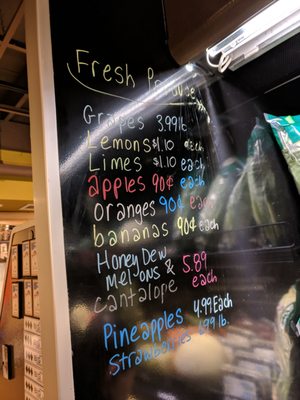 Fresh Produce
Grapes 3.99 lb
Lemons $1.10 each
Limes $1.10 each
apples 90¢ each
oranges 90¢ each
bananas 90¢ each
Honey Dew
melons & 5.89
cantalope each
Pineapples 4.99 Each
Strawberries 6.99 lb.